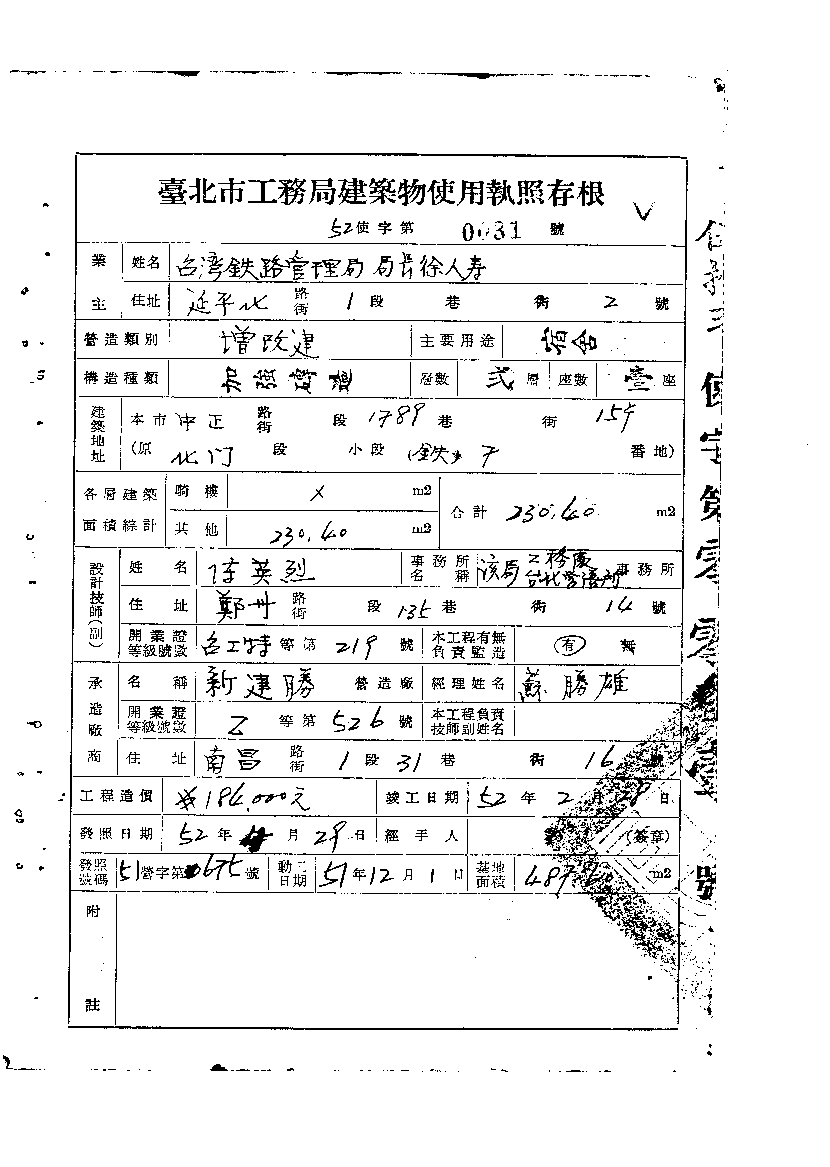 臺北市工務局建築物使用執照存根
52使字第 0031 號
業主 姓名 台湾鉄路管理局 局長徐人寿
住址 延平北 路街 1 段 巷 衖 2 號
營造類別 增改建 主要用途 宿舍
構造種類 加強磚造 層數 弍 層 座數 壹 座
建築地址 本市 中正 路街 段 1789 巷 衖 154
(原 北门 段 小段 (鉄) 7 番地)
各層建築面積綜計 騎樓 × m2 合計 230.40 m2
其他 230.40 m2
設計技師(副) 姓名 英烈 事務所名稱 該局工務處台北管理所 事務所
住址 鄭州 路街 段 135 巷 衖 14 號
開業證等級號數 台工特 等第 219 號 本工程有無負責監造 有 無
承造廠商 名稱 新建勝 營造廠 經理姓名 蘇勝雄
開業證等級號數 乙 等第 526 號 本工程負責技師副姓名
住址 南昌 路街 1 段 31 巷 衖 16
工程造價 ¥184,000元 竣工日期 52 年 2 月 28 日
發照日期 52 年 4 月 29 日 經手人 (簽章)
發照號碼 51 營字第 0675 號 動工日期 51 年 12 月 1 日 基地面積 487 m2
附註
使字第零零 號